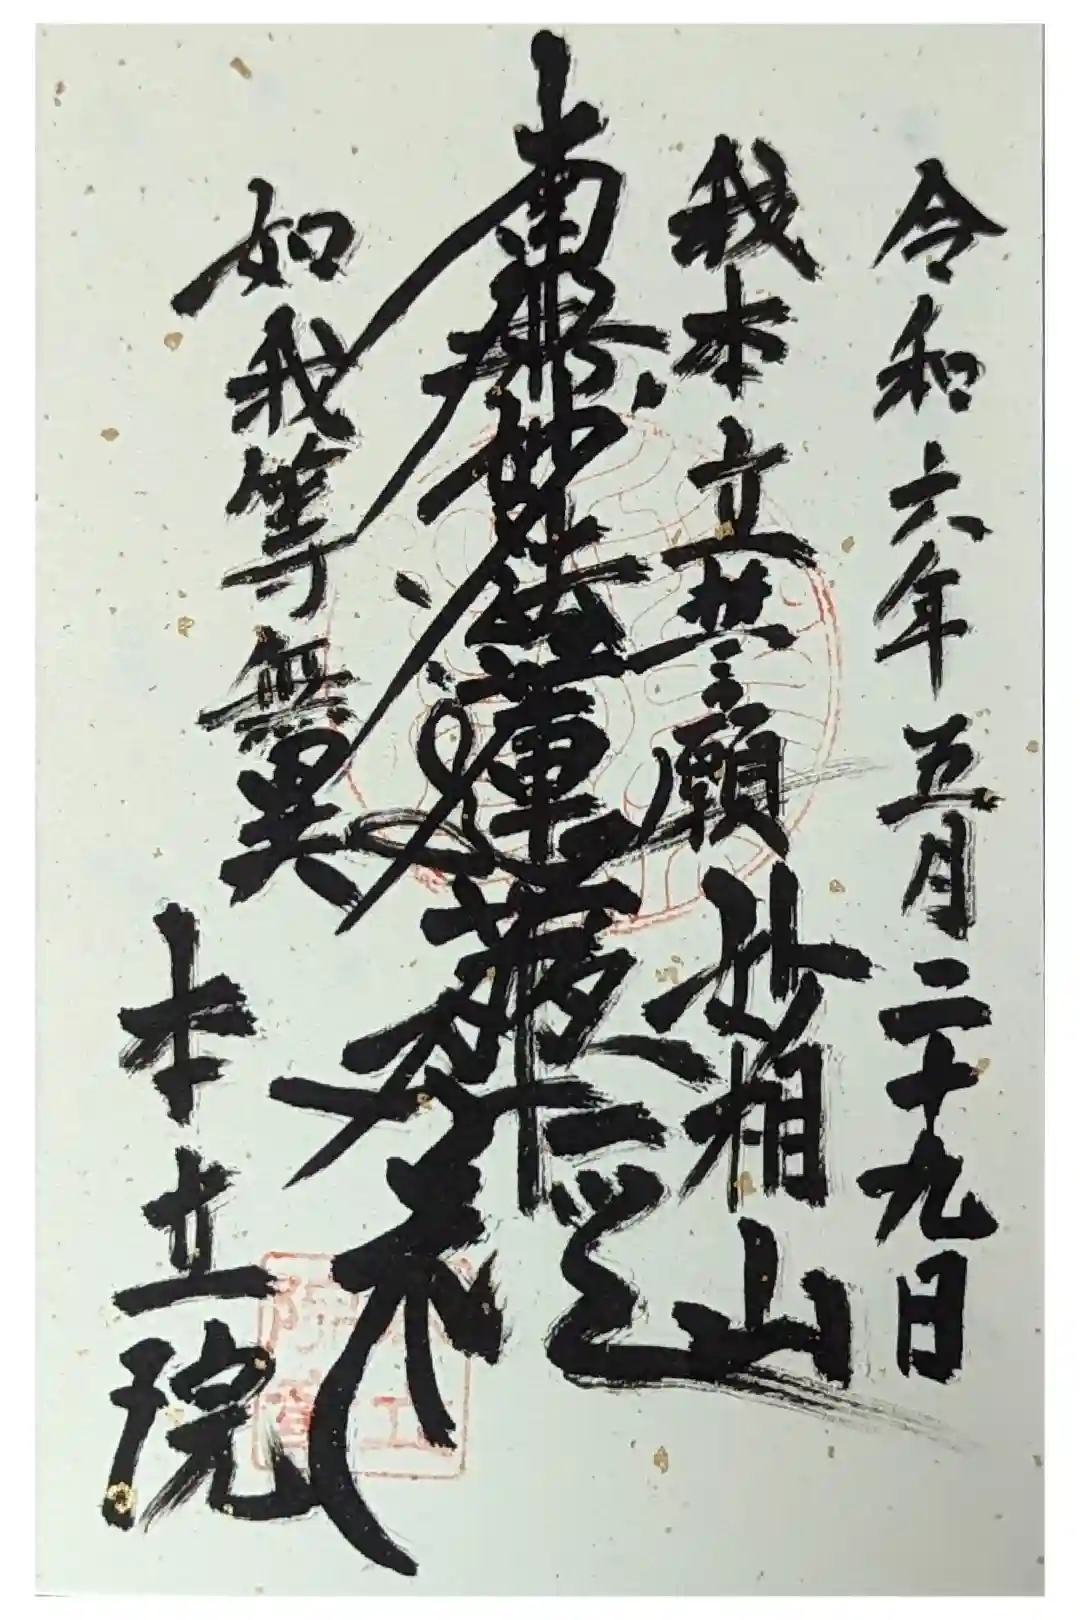 令和六年五月二十九日
我本立誓願
妙相山
南無妙法蓮華経
如我等無異
本立院